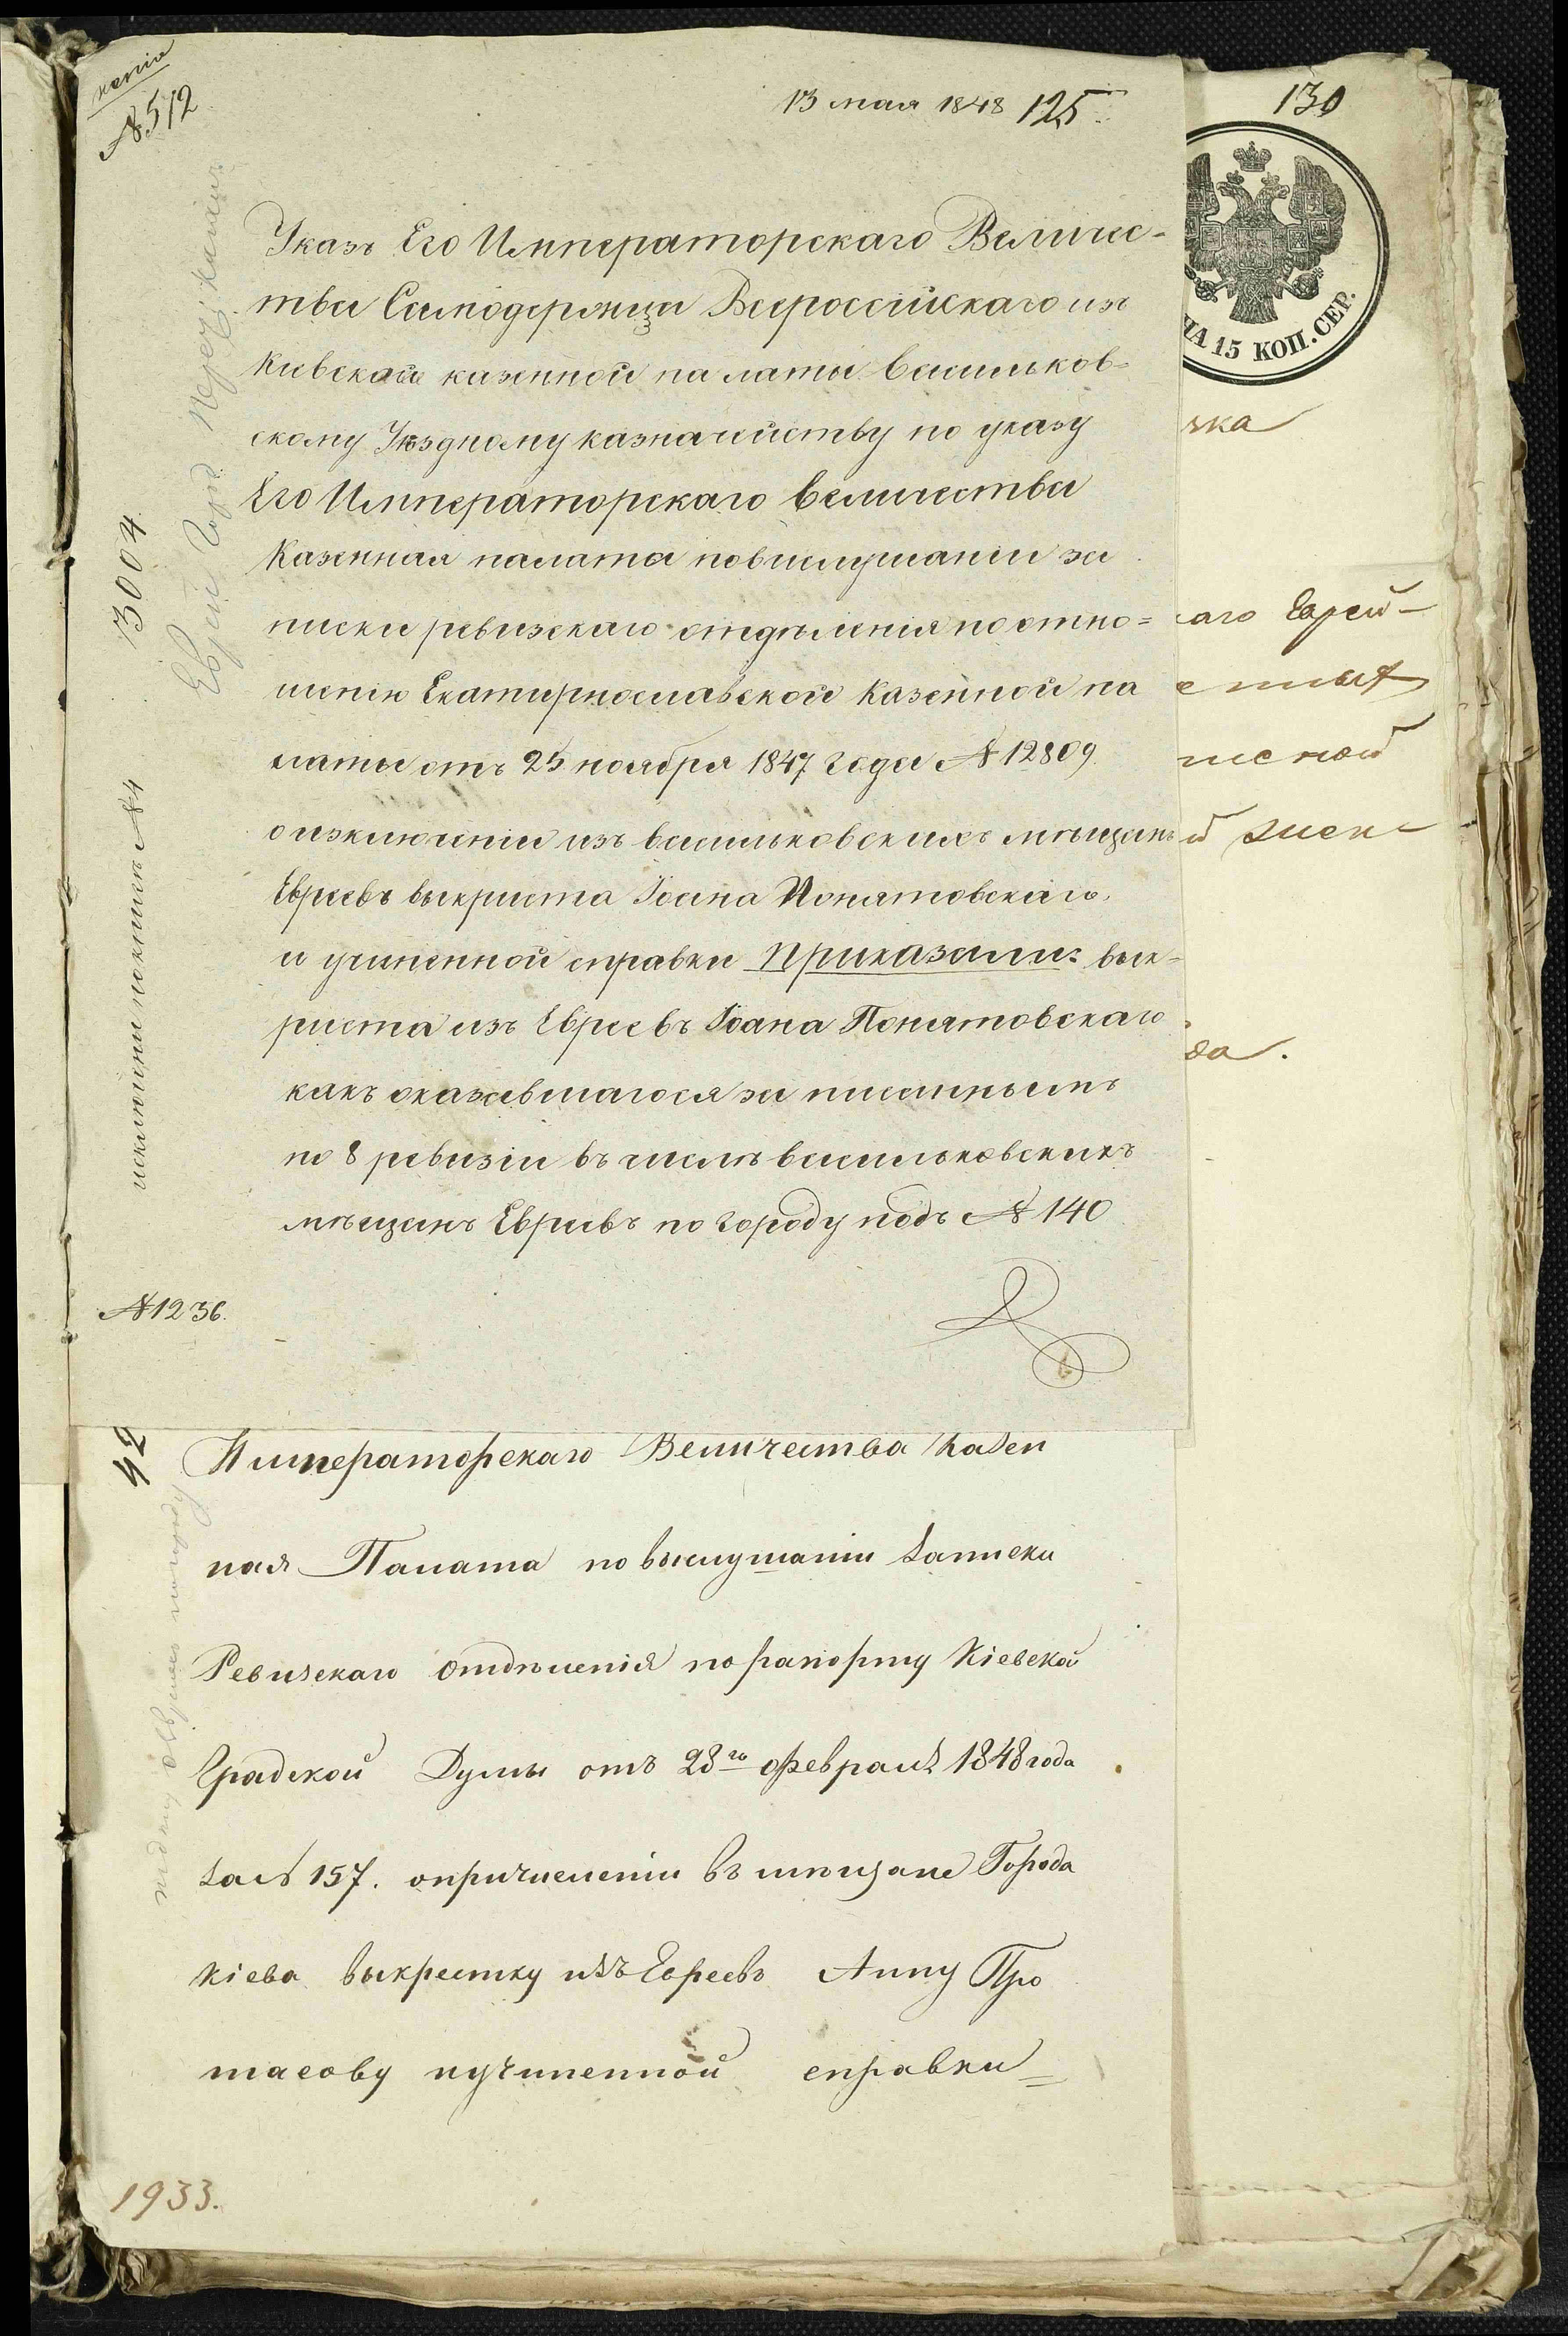 № 512
13 мая 1848 125
130
Указъ Его Императорскаго Величес-
тва Самодержца Всероссійскаго изъ
Кивской казенной палаты Васильков-
скому Уѣздному казначейству по указу
Его Императорскаго Величества
Казенная палата повыслушании за
писки ревизскаго отдѣленія по отно=
шенію Екатирнославской Казенной па
латы отъ 25 ноября 1847 года № 12809.
о изключеніи изъ васильковскихъ мѣщанъ
Евреевъ выкриста Іоана Понятовскаго.
и учиненной справки Приказали: вык-
риста изъ Евреевъ Іоана Понятовскаго
какъ оказавшагося записаннымъ
по 8 ревизіи въ числѣ васильковскихъ
мѣщанъ Евриевъ по городу подъ № 140
№ 1236.
3004
Еврей Горд
НА 15 КОП. СЕР.
чка
аго Еврей-
да.
42
Императорскаго Величества Казен
ная Палата по выслушаніи Записки
Ревизскаго Отдѣленія по рапорту Кіевской
Градской Думы отъ 28го февраля 1848 года
за № 157. опричисленіи въ мѣщане Города
Кіева выкрестку изъ Евреевъ Анну Про
тасову иучиненной справки=
1933.